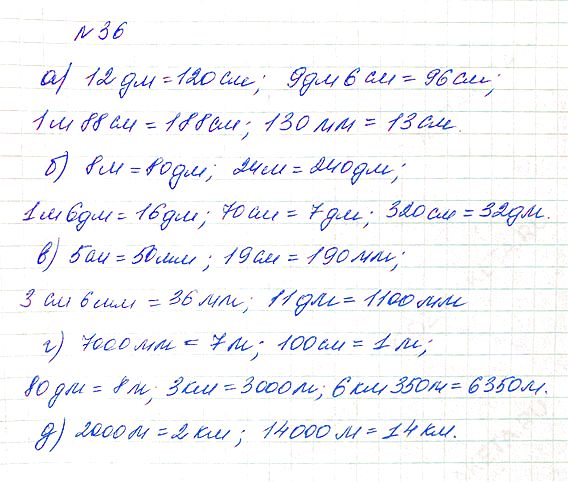 №36
а) 12 дм = 120 см; 9 дм 6 см = 96 см;
1 м 88 см = 188 см; 130 мм = 13 см.
б) 8 м = 80 дм; 24 м = 240 дм;
1 м 6 дм = 16 дм; 70 см = 7 дм; 320 см = 32 дм.
в) 5 см = 50 мм; 19 см = 190 мм;
3 см 6 мм = 36 мм; 11 дм = 1100 мм
г) 7000 мм = 7 м; 100 см = 1 м;
80 дм = 8 м; 3 км = 3000 м; 6 км 350 м = 6350 м.
д) 2000 м = 2 км; 14000 м = 14 км.